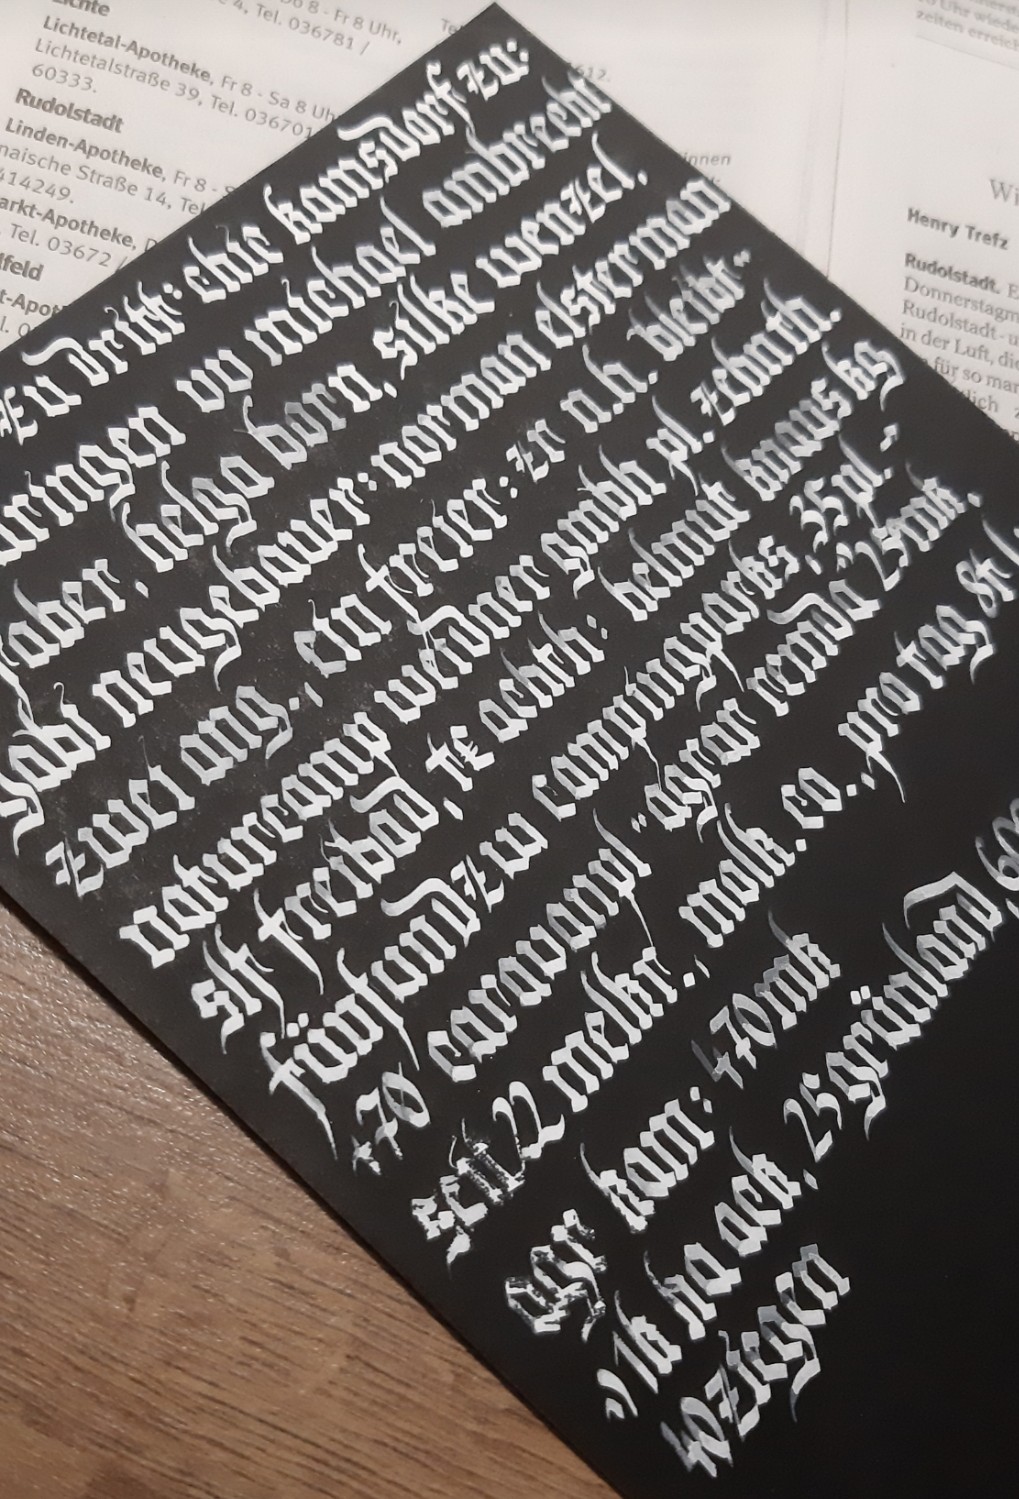 Lichte
Lichtetal-Apotheke, Fr 8 - Sa 8 Uhr
Lichtetalstraße 39, Tel. 036701
60333.
Rudolstadt
Linden-Apotheke, Fr 8 - S
naische Straße 14, Tel
414249.
arkt-Apotheke, D
, Tel. 03672 /
lfeld
t-Apot
8 - Fr 8 Uhr,
4, Tel. 036781 /
Te
612.
innen
Wi
Henry Trefz
Rudolstadt. E
Donnerstagm
Rudolstadt-u
in der Luft, die
für so man
dlich
Uhr wiede
zeiten erreich
zu dritt: chie kamsdorf zu:
uringen vo michael ambrecht
faber, helga born, silke wenzel,
gabi neugebauer: norman elsterman
zwei ang., ein freier: zn n.h. bleibt"
naturcamp weidner gmbh pl. zehnth.
elf freibad, te achth: helmut knauskg
fünfundzw campingparks, 35pl."
+70 caravanpl "agrar remda 225mk.
sen 22 melkr., molk. co., pro tag &
agr kam: 470mk
1k ha ack, 25grünland 600
40ziegen